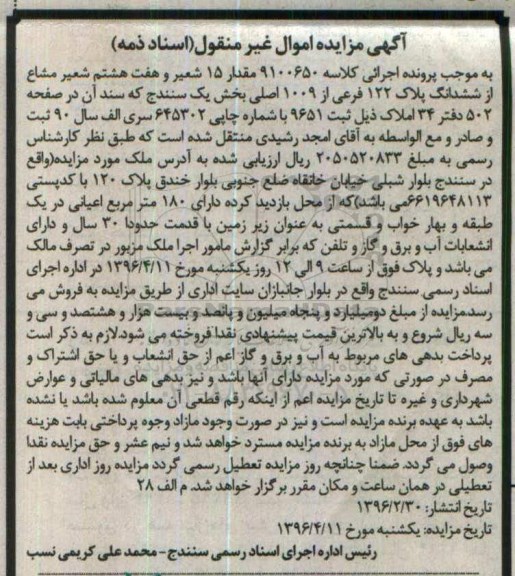 آگهی مزایده اموال غیر منقول(اسناد ذمه)
به موجب پرونده اجرائی کلاسه ۹۱۰۰۶۵۰ مقدار ۱۵ شعیر و هفت هشتم شعیر مشاع
از ششدانگ پلاک ۱۲۲ فرعی از ۱۰۰۹ اصلی بخش یک سنندج که سند آن در صفحه
۵۰۲ دفتر ۳۴ املاک ذیل ثبت ۹۶۵۱ با شماره چاپی ۶۴۵۳۰۲ سری الف سال ۹۰ ثبت
و صادر و مع الواسطه به آقای امجد رشیدی منتقل شده است که طبق نظر کارشناس
رسمی به مبلغ ۲۰۵۰۵۲۰۸۳۳ ریال ارزیابی شده به آدرس ملک مورد مزایده(واقع
در سنندج بلوار شبلی خیابان خانقاه ضلع جنوبی بلوار خندق پلاک ۱۲۰ با کدپستی
۶۶۱۹۶۴۸۱۱۳می باشد)که از محل بازدید کرده دارای ۱۸۰ متر مربع اعیانی در یک
طبقه و بهار خواب و قسمتی به عنوان زیر زمین با قدمت حدودا ۳۰ سال و دارای
انشعابات آب و برق و گاز و تلفن که برابر گزارش مامور اجرا ملک مزبور در تصرف مالک
می باشد و پلاک فوق از ساعت ۹ الی ۱۲ روز یکشنبه مورخ ۱۳۹۶/۴/۱۱ در اداره اجرای
اسناد رسمی سنندج واقع در بلوار جانبازان سایت اداری از طریق مزایده به فروش می
رسدمزایده از مبلغ دومیلیارد و پنجاه میلیون و پانصد و بیست هزار و هشتصد و سی و
سه ریال شروع و به بالاترین قیمت پیشنهادی نقدا فروخته می شود.لازم به ذکر است
پرداخت بدهی های مربوط به آب و برق و گاز اعم از حق انشعاب و یا حق اشتراک و
مصرف در صورتی که مورد مزایده دارای آنها باشد و نیز بدهی های مالیاتی و عوارض
شهرداری و غیره تا تاریخ مزایده اعم از اینکه رقم قطعی آن معلوم شده باشد یا نشده
باشد به عهده برنده مزایده است و نیز در صورت وجود مازاد وجوه پرداختی بابت هزینه
های فوق از محل مازاد به برنده مزایده مسترد خواهد شد و نیم عشر و حق مزایده نقدا
وصول می گردد. ضمنا چنانچه روز مزایده تعطیل رسمی گردد مزایده روز اداری بعد از
تعطیلی در همان ساعت و مکان مقرر برگزار خواهد شد. م الف ۲۸
تاریخ انتشار: ۱۳۹۶/۲/۳۰
تاریخ مزایده: یکشنبه مورخ ۱۳۹۶/۴/۱۱
رئیس اداره اجرای اسناد رسمی سنندج - محمد علی کریمی نسب